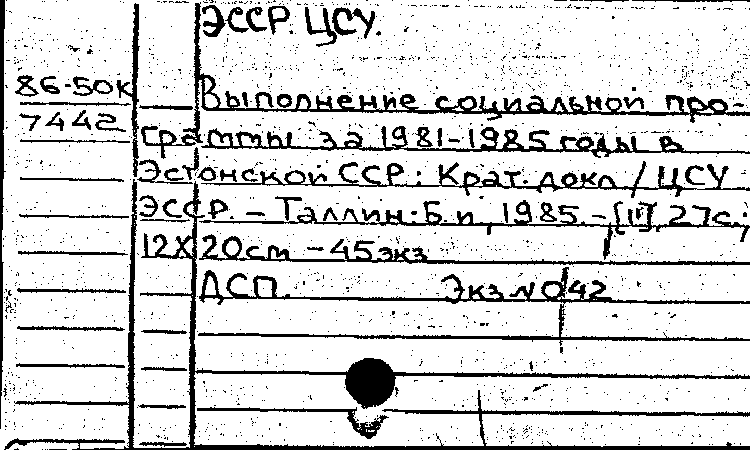 ЭССР. ЦСУ.
86-50к Выполнение социальной про-
7442 граммы за 1981-1985 годы в
Эстонской ССР: Крат. докл / ЦСУ
ЭССР. - Таллин: Б.и, 1985. - [II], 27с.;
12X20см - 45экз
ДСП. Экз №042